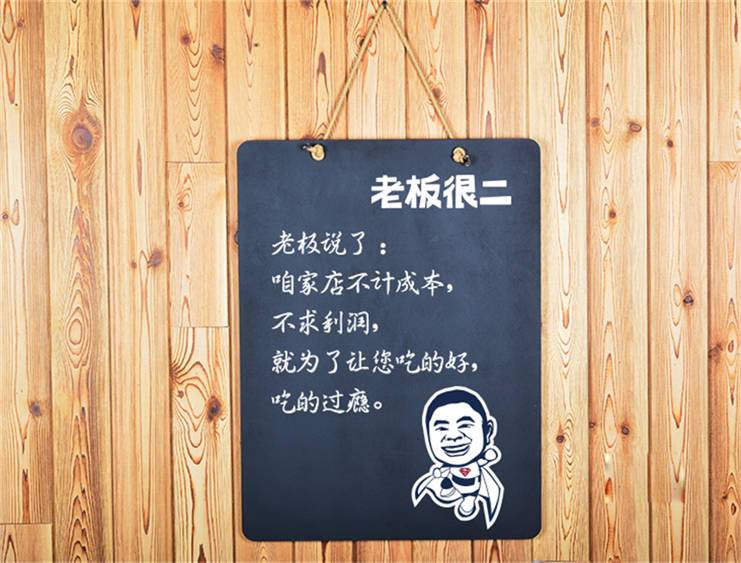 老板很二
老板说了：
咱家店不计成本，
不求利润，
就为了让您吃的好，
吃的过瘾。